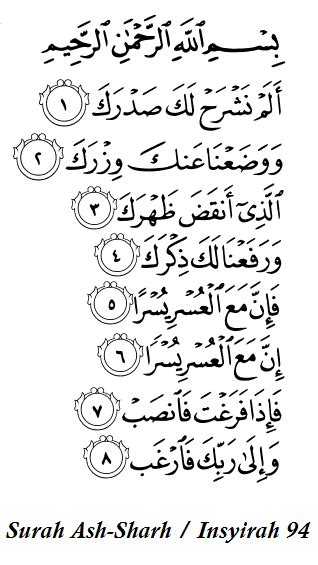 بِسْمِ ٱللَّهِ ٱلرَّحْمَٰنِ ٱلرَّحِيمِ
أَلَمْ نَشْرَحْ لَكَ صَدْرَكَ ١
وَوَضَعْنَا عَنكَ وِزْرَكَ ٢
ٱلَّذِىٓ أَنقَضَ ظَهْرَكَ ٣
وَرَفَعْنَا لَكَ ذِكْرَكَ ٤
فَإِنَّ مَعَ ٱلْعُسْرِ يُسْرًا ٥
إِنَّ مَعَ ٱلْعُسْرِ يُسْرًا ٦
فَإِذَا فَرَغْتَ فَٱنصَبْ ٧
وَإِلَىٰ رَبِّكَ فَٱرْغَب ٨
Surah Ash-Sharh / Insyirah 94